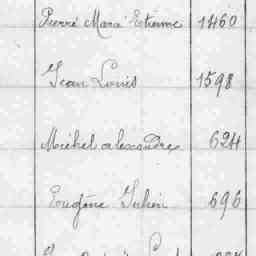 Pierre Marie Etienne 1460
Jean Louis 1598
Michel alexandre 624
Eugène Julien 696